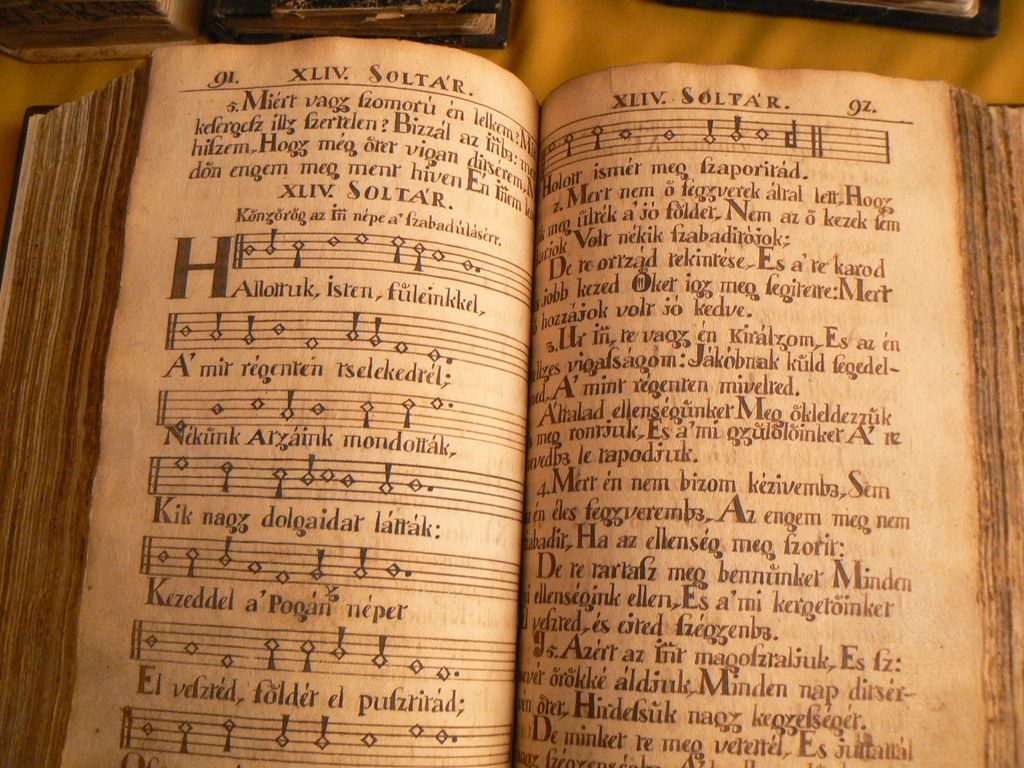 91. XLIV. SOLTÁR.
5. Miért vagy szomorú én lelkem?
kesergesz illy szertelen? Bizzál az
hiszem, Hogy még őtet vigan ditsérem,
dőn engem meg ment hiven Én
XLIV. SOLTÁR.
Könyörög az népe a' szabadúlásért.
HAllottuk, isten, füleinkkel,
A' mit régenten tselekedtél;
Nékünk Atyáink mondották,
Kik nagy dolgaidat látták:
Kezeddel a' Pogány népet
El vesztéd, földét el pusztitád;
XLIV. SOLTÁR. 92.
Holott ismét meg szaporitád.
2. Mert nem ő fegyverek által lett, Hogy
meg ülték a' jó földet, Nem az ő kezek sem
Volt nékik szabaditójok;
De te orczád tekintése, Es a' te karod
jobb kezed Őket igy meg segitette: Mert
hozzájok volt jó kedve.
3. Ur te vagy én Királyom, Es az én
vigasságom: Jákóbnak küld segedel-
A' mint régenten mivelted.
Általad ellenségünket Meg ökleldezzük
meg rontjuk, Es a' mi gyülölöinket A' te
le tapodjuk.
4. Mert én nem bizom kézivemben, Sem
én éles fegyveremben, Az engem meg nem
Ha az ellenség meg szorit:
De te tartasz meg bennünket Minden
ellenségink ellen, Es a' mi kergetőinket
veszted, és ejted szégyenben.
5. Azért az magasztaljuk, Es sz:
örökké áldjuk, Minden nap ditsér-
őtet, Hirdessük nagy kegyességét.
De minket te meg vertettél, Es juttattál